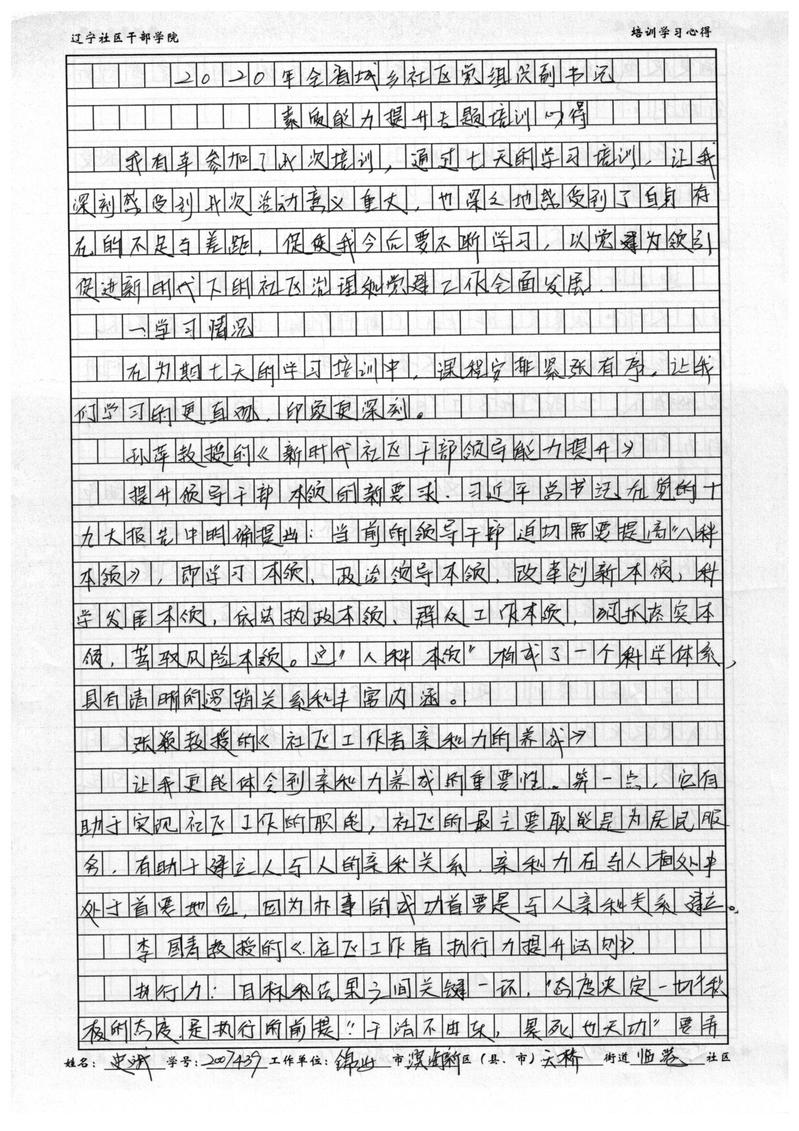 辽宁社区干部学院 培训学习心得
2020年全省城乡社区党组织副书记
素质能力提升主题培训心得
我有幸参加了此次培训，通过七天的学习培训，让我
深刻感受到此次活动意义重大，也深深地感受到了自身存
在的不足与差距，促使我今后要不断学习，以党建为领引
促进新时代下的社区治理和党建工作全面发展。
一、学习情况
在为期七天的学习培训中，课程安排紧张有序，让我
们学习的更直观，印象更深刻。
孙萍教授的《新时代社区干部领导能力提升》
提升领导干部本领的新要求．习近平总书记在党的十
九大报告中明确提出：当前的领导干部迫切需要提高“八种
本领》，即学习本领，政治领导本领，改革创新本领，科
学发展本领，依法执政本领、群众工作本领，狠抓落实本
领，驾驭风险本领。这“八种本领”构成了一个科学体系，
具有清晰的逻辑关系和丰富内涵。
张颖教授的《社区工作者亲和力的养成》
让我更能体会到亲和力养成的重要性。第一点，它有
助于实现社区工作的职能，社区的最主要职能是为居民服
务，有助于建立人与人的亲和关系．亲和力在与人相处中
处于首要地位，因为办事的成功首要是与人亲和关系建立。
李国青教授的《社区工作者执行力提升法则》
执行力：目标和结果之间关键一环，“态度决定一切”积
极的态度是执行的前提“干活不由东，累死也无功”要弄
姓名：史诚 学号：2007439 工作单位：锦州 市 滨海新 区（县、市）天桥 街道 街道 社区